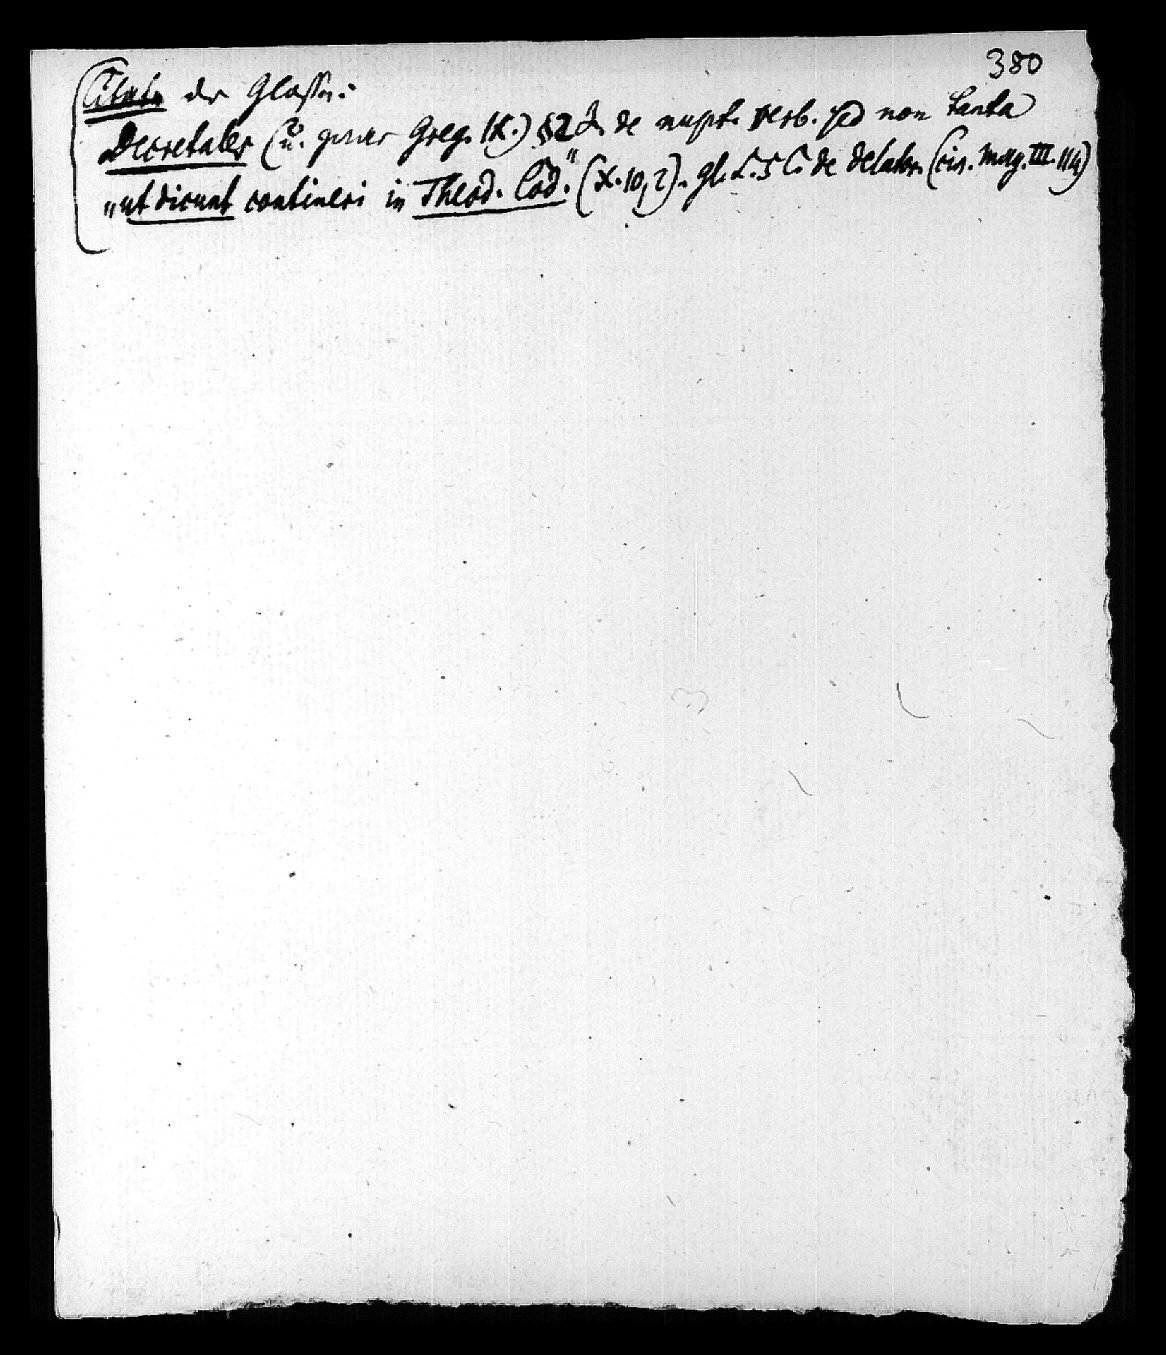 380
Citate der Glosse:
Decretales (u. zwar Greg. IX.) § 2 J. de nupt. verb. sed non tanta
„ut dicunt contineri in Theod. Cod." (X. 10, 2). gl. L. 5 C. de delator. (civ. mag. III. 114)